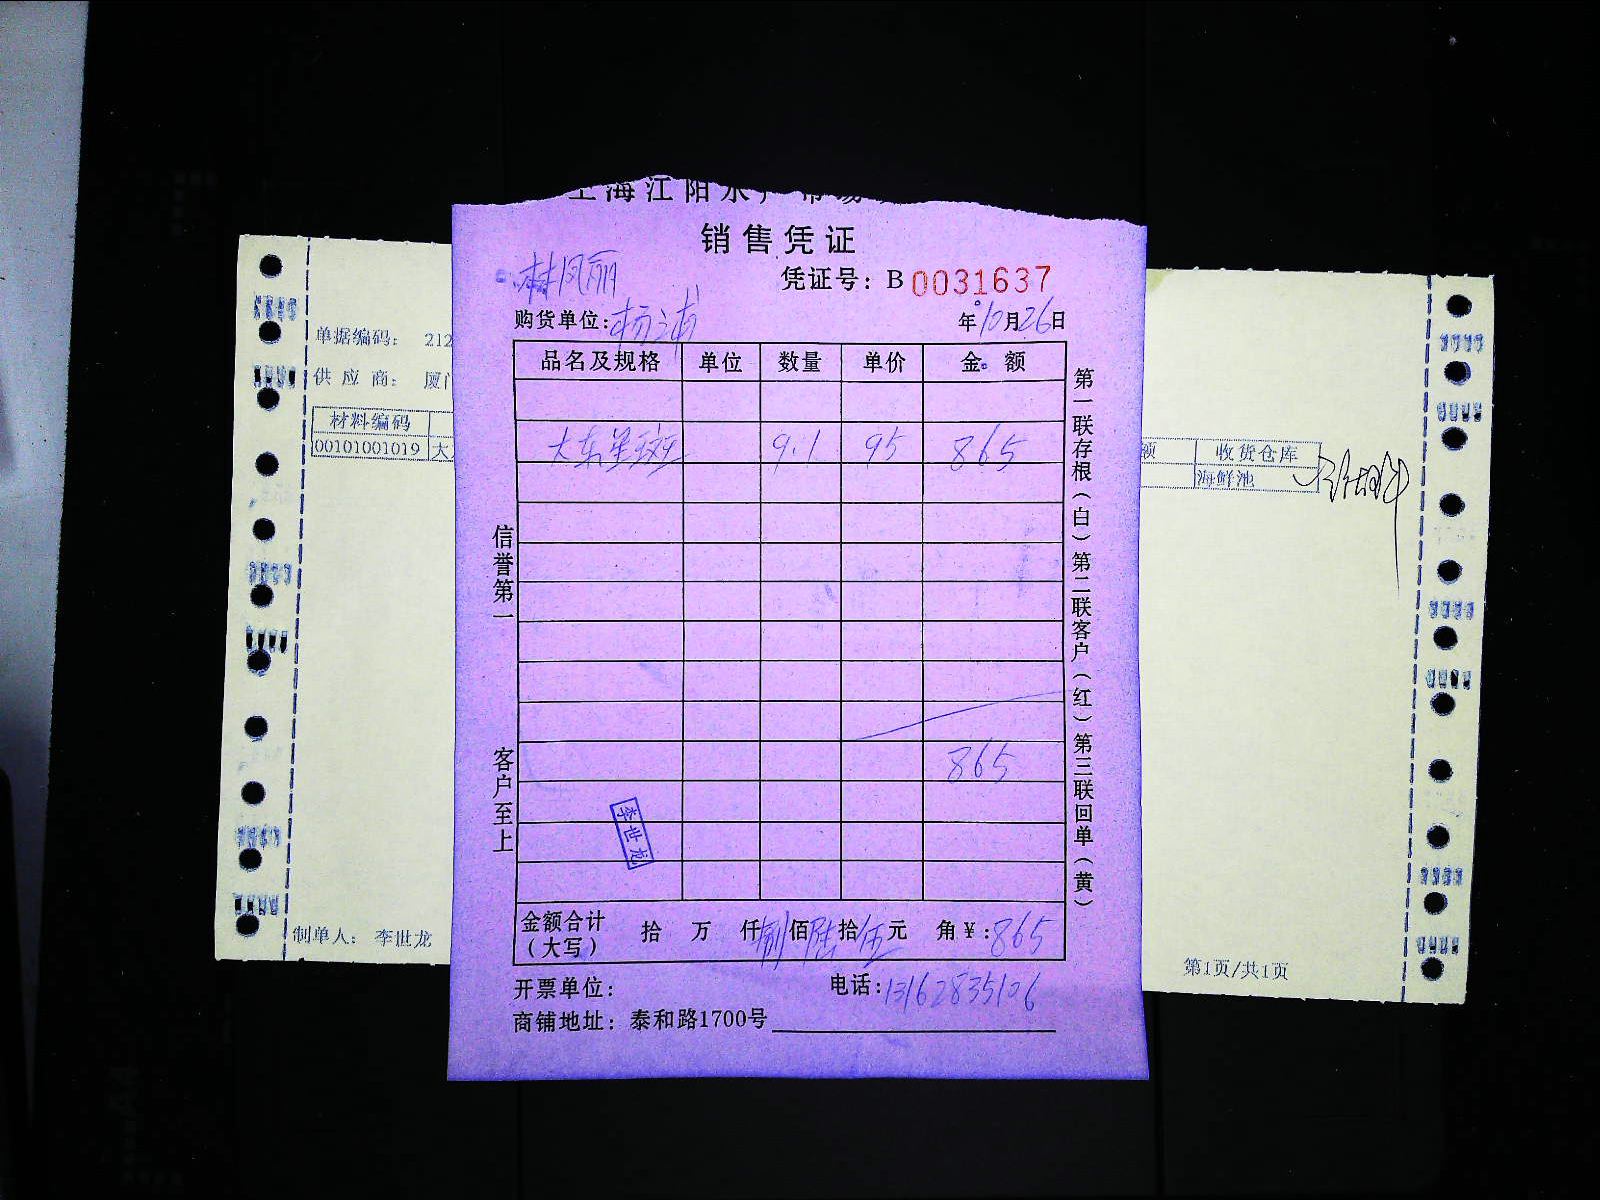 上海江阳水产市场
销售凭证
林凤丽
凭证号：B 0031637
购货单位：杨浦
年10月26日
品名及规格 单位 数量 单价 金额
大东星斑 9.1 95 865
865
李世龙
金额合计（大写） 拾 万 仟捌佰陆拾伍元 角¥：865
开票单位：
电话：13162835106
商铺地址：泰和路1700号
信誉第一
客户至上
第一联存根（白）第二联客户（红）第三联回单（黄）
单据编码： 212
供应商： 厦门
材料编码
00101001019 大
制单人： 李世龙
额 收货仓库
海鲜池
第1页/共1页